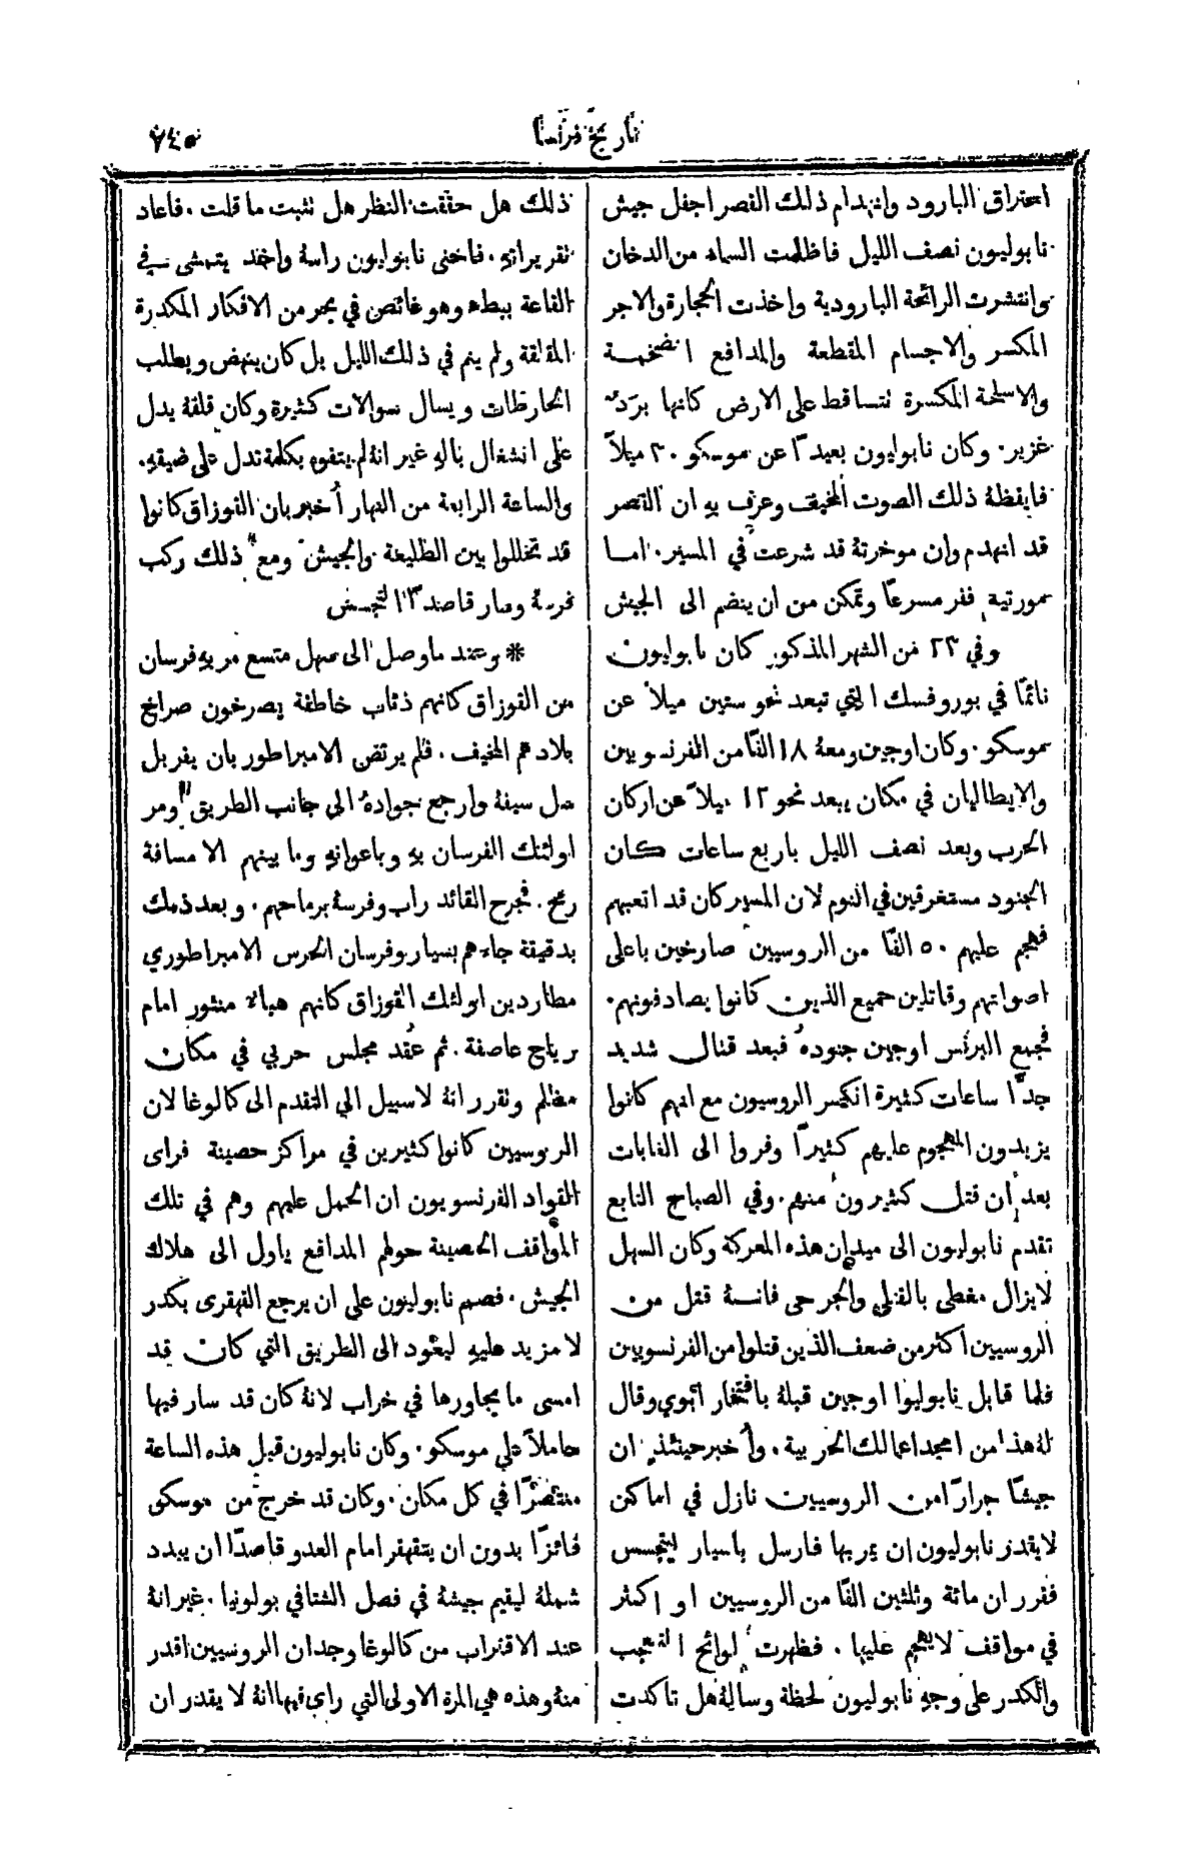 تاريخ فرنسا
٧٤٥
احتراق البارود وانهدام ذلك القصر اجفل جيش
نابوليون نصف الليل فاظلمت السماء من الدخان
وانتشرت الرائحة البارودية واخذت الحجارة والاجر
المكسر والاجسام المقطعة والمدافع الضخمة
والاسلحة المكسرة تتساقط على الارض كانها برَد
غزير. وكان نابوليون بعيدًا عن موسكو ٣٠ ميلاً
فايقظهُ ذلك الصوت المخيف وعرف به ان القصر
قد انهدم وان موخرته قد شرعت في المسير. اما
مورتيه ففر مسرعًا وتمكن من ان ينضم الى الجيش
وفي ٢٣ من الشهر المذكور كان نابوليون
نائمًا في بوروفسك التي تبعد نحو ستين ميلاً عن
موسكو. وكان اوجين ومعهُ ١٨ الفًا من الفرنسويين
والايطاليان في مكان يبعد نحو ١٢ ميلاً عن اركان
الحرب وبعد نصف الليل باربع ساعات كان
الجنود مستغرقين في النوم لان المسير كان قد اتعبهم
فهجم عليهم ٥٠ الفًا من الروسيين صارخين باعلى
اصواتهم وقاتلين جميع الذين كانوا يصادفونهم.
فجمع البرنس اوجين جنودهُ فبعد قتال شديد
جدًّا ساعات كثيرة انكسر الروسيون مع انهم كانوا
يزيدون الهجوم عليهم كثيرًا وفروا الى الغابات
بعد ان قتل كثيرون منهم. وفي الصباح التابع
تقدم نابوليون الى ميدان هذه المعركة وكان السهل
لا يزال مغطى بالقتلى والجرحى فانهُ قتل من
الروسيين اكثر من ضعف الذين قتلوا من الفرنسويين
فلما قابل نابوليوا اوجين قبلهُ بافتخار ابوي وقال
لهُ هذا من امجد اعمالك الحربية. وأُخبر حينئذٍ ان
جيشًا جرارًا من الروسيين نازل في اماكن
لا يقدر نابوليون ان يمر بها فارسل باسيار ليتجسس
فقرر ان مائة وثلثين الفًا من الروسيين او اكثر
في مواقف لا يهجم عليها. فظهرت لوائح التعجب
والكدر على وجه نابوليون لحظة وسالهُ هل تاكدت
ذلك هل حققت النظر هل تثبت ما قلت. فاعاد
تقريراته. فاحنى نابوليون راسهُ واخذ يتمشى في
القاعة ببطء وهو غائص في بحر من الافكار المكدرة
المقلقة ولم ينم في ذلك الليل بل كان ينهض ويطلب
الخارطات ويسال سوالات كثيرة وكان قلقهُ يدل
على انشغال باله غير انهُ لم يتفوه بكلمة تدل على ضيقه.
والساعة الرابعة من النهار أُخبر بان القوزاق كانوا
قد تخللوا بين الطليعة والجيش ومع ذلك ركب
فرسهُ وسار قاصدًا التجسس
* وعند ما وصل الى سهل متسع مر به فرسان
من القوزاق كانهم ذئاب خاطفة يصرخون صراخ
بلادهم المخيف. فلم يرتض الامبراطور بان يفر بل
سل سيفهُ وارجع جوادهُ الى جانب الطريق ومر
اولئك الفرسان به وباعوانه وما بينهم الا مسافة
رمح. فجرح القائد راب وفرسهُ برماحهم. وبعد ذلك
بدقيقة جاءهم بسيار وفرسان الحرس الامبراطوري
مطاردين اولئك القوزاق كانهم هباء منثور امام
رياح عاصفة. ثم عُقد مجلس حربي في مكان
مظلم وتقرر انهُ لا سبيل الى التقدم الى كالوغا لان
الروسيين كانوا كثيرين في مراكز حصينة فراى
القواد الفرنسويون ان الحمل عليهم وهم في تلك
المواقف الحصينة حولهم المدافع ياول الى هلاك
الجيش. فصمم نابوليون على ان يرجع القهقرى بكدر
لا مزيد عليه ليعود الى الطريق التي كان قد
امسى ما يجاورها في خراب لانهُ كان قد سار فيها
حاملاً على موسكو. وكان نابوليون قبل هذه الساعة
منتصرًا في كل مكان. وكان قد خرج من موسكو
فائزًا بدون ان يتقهقر امام العدو قاصدًا ان يبدد
شملهُ ليقيم جيشهُ في فصل الشتا في بولونيا. غير انهُ
عند الاقتراب من كالوغا وجد ان الروسيين اقدر
منهُ وهذه هي المرة الاولى التي راى فيها انهُ لا يقدر ان